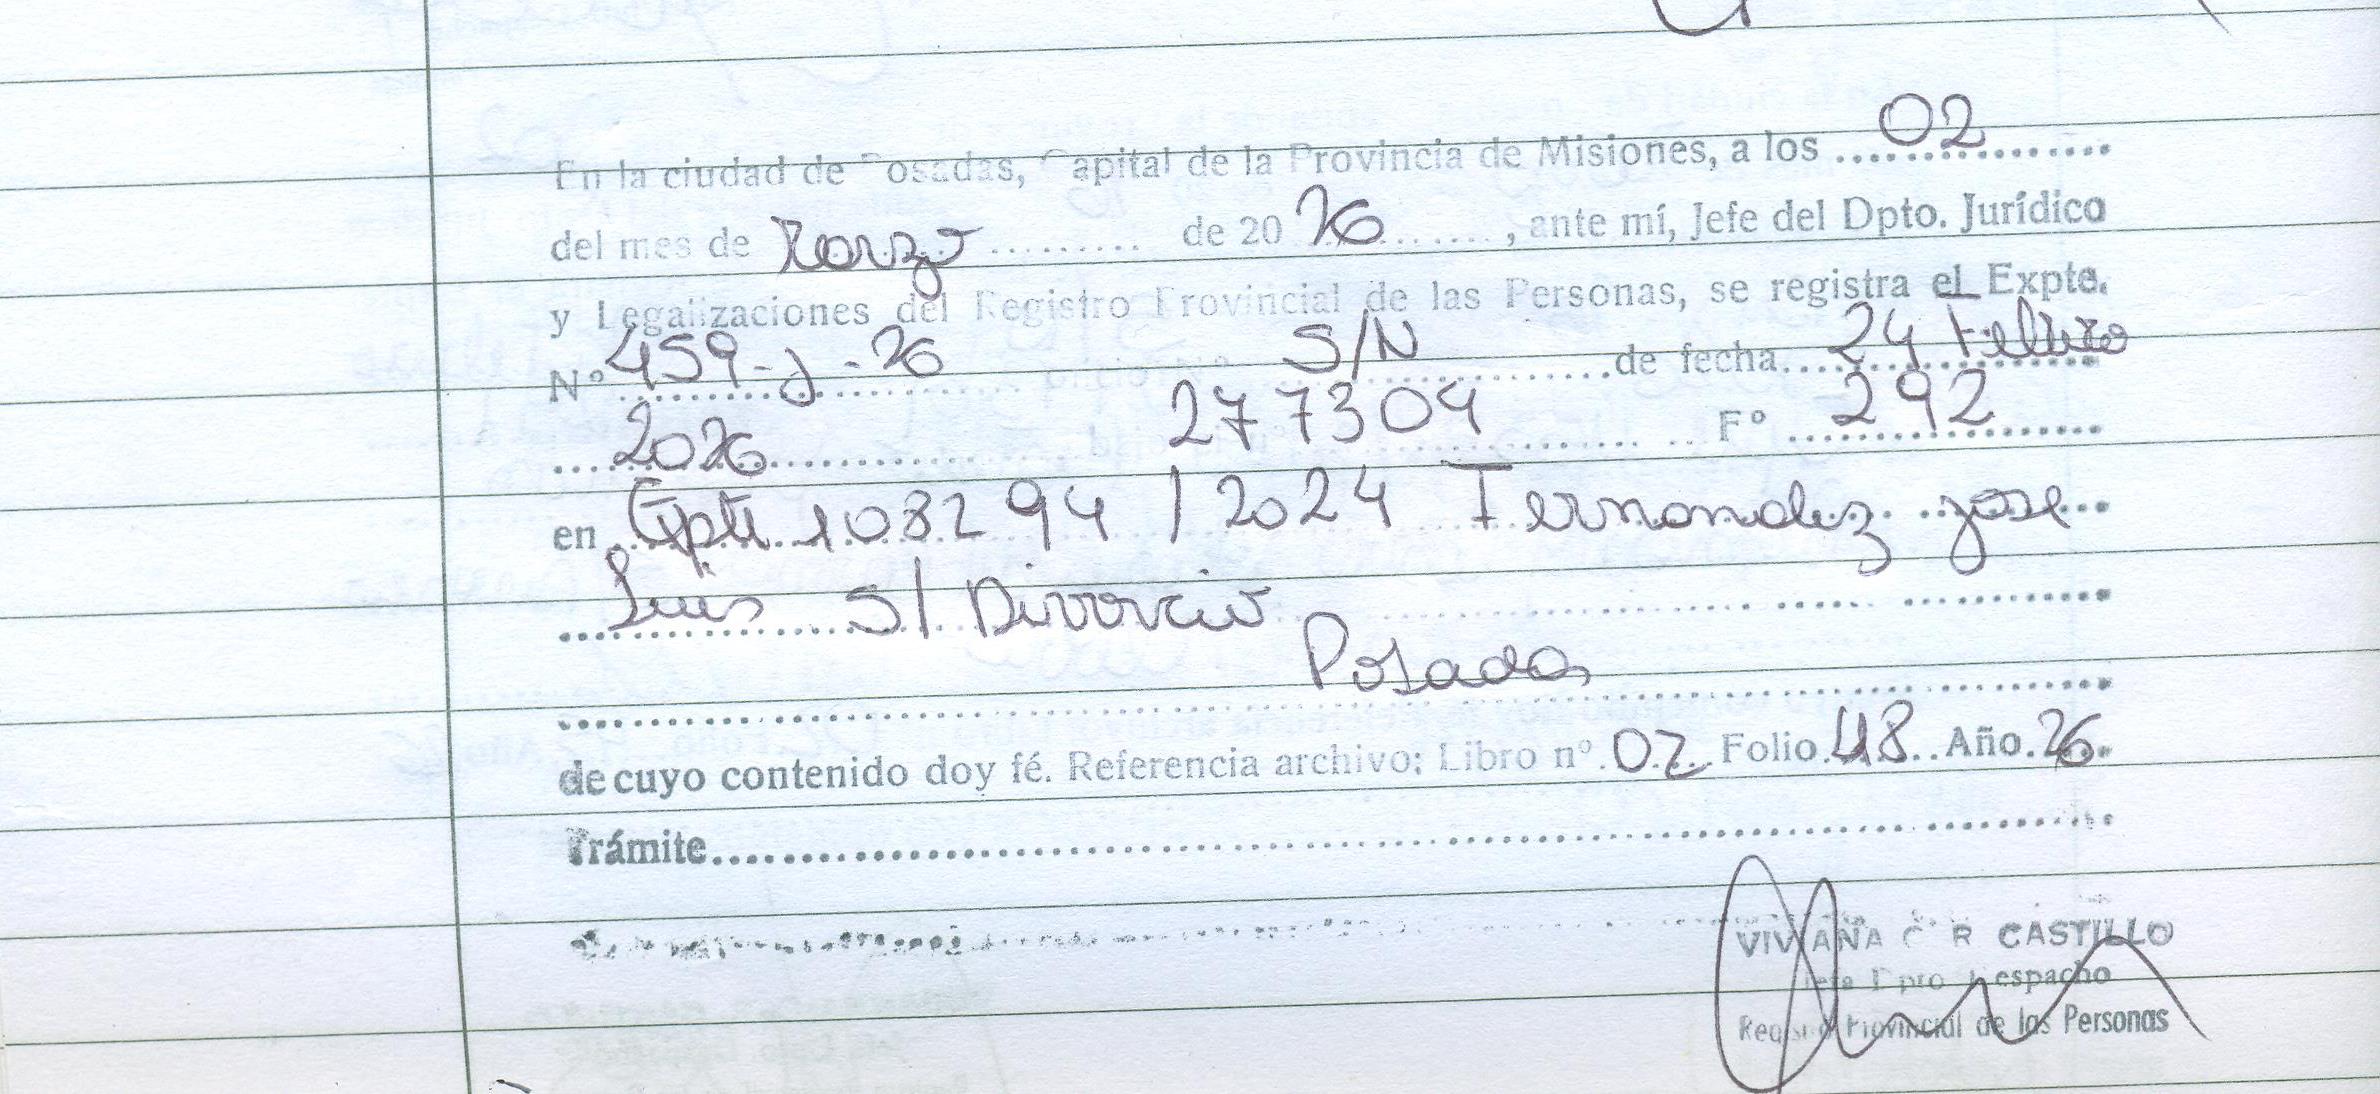 En la ciudad de Posadas, Capital de la Provincia de Misiones, a los 02
del mes de Marzo de 20 26, ante mí, Jefe del Dpto. Jurídico
y Legalizaciones del Registro Provincial de las Personas, se registra el Expte.
Nº 459-J-26 S/N de fecha 24 Febrero
2026 277304 Fº 292
en Expte 108294 / 2024 Fernandez Jose
Luis S/ Divorcio
Posadas
de cuyo contenido doy fé. Referencia archivo; Libro nº 02 Folio 48 Año 26
Trámite
VIVIANA C R CASTILLO
Jefa Dpto Despacho
Registro Provincial de las Personas